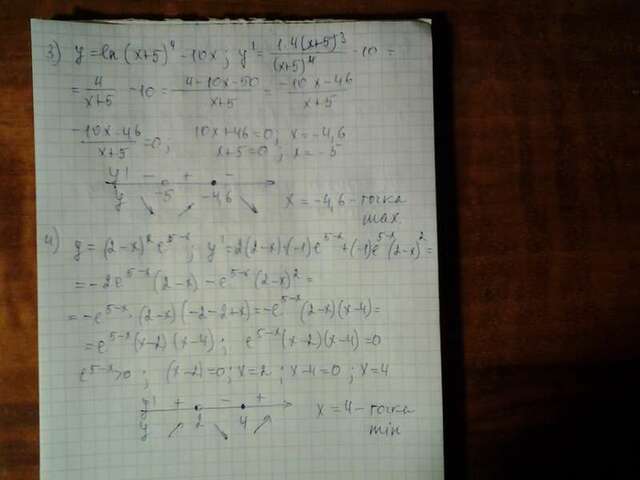 3) y = ln(x+5)^4 - 10x; y' = 1·4(x+5)^3/(x+5)^4 - 10 =
= 4/(x+5) - 10 = (4-10x-50)/(x+5) = (-10x-46)/(x+5)
(-10x-46)/(x+5) = 0; 10x+46=0; x=-4,6
x+5=0; x=-5
y' - + -
y -5 -4,6
↘ ↗ ↘
x = -4,6 - точка
max
4) y = (2-x)^2 e^(5-x); y' = 2(2-x)·(-1)e^(5-x) + (-1)e^(5-x)(2-x)^2 =
= -2e^(5-x)(2-x) - e^(5-x)(2-x)^2 =
= -e^(5-x)·(2-x)(-2-2+x) = -e^(5-x)(2-x)(x-4) =
= e^(5-x)(x-2)(x-4); e^(5-x)(x-2)(x-4) = 0
e^(5-x)>0; (x-2)=0; x=2; x-4=0; x=4
y' + - +
y 2 4
↗ ↘ ↗
x = 4 - точка
min